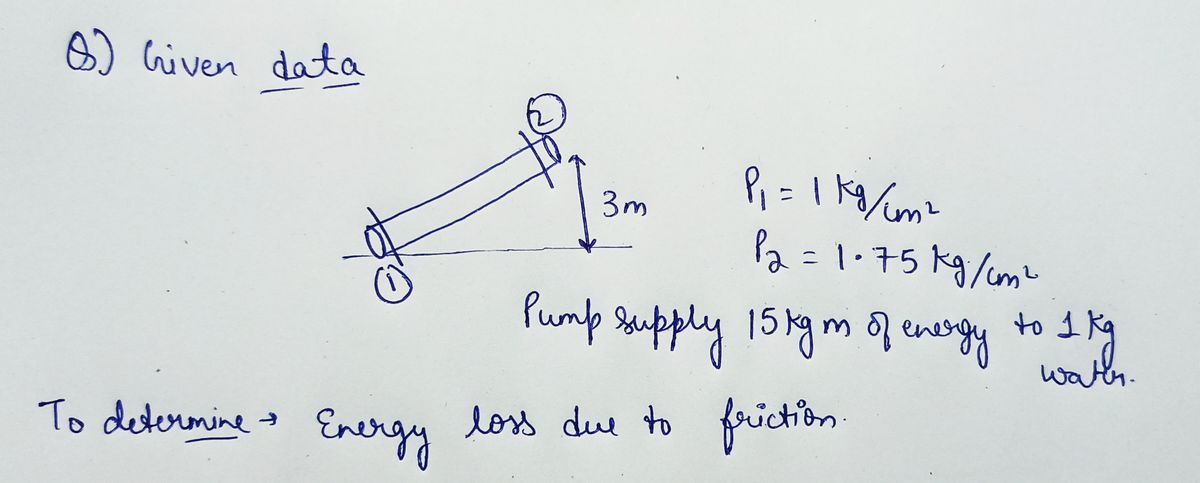 Q) Given data
2
3m
P₁ = 1 kg/cm²
P₂ = 1.75 kg/cm²
1
Pump supply 15 kg m of energy to 1 kg
water.
To determine → Energy loss due to friction.